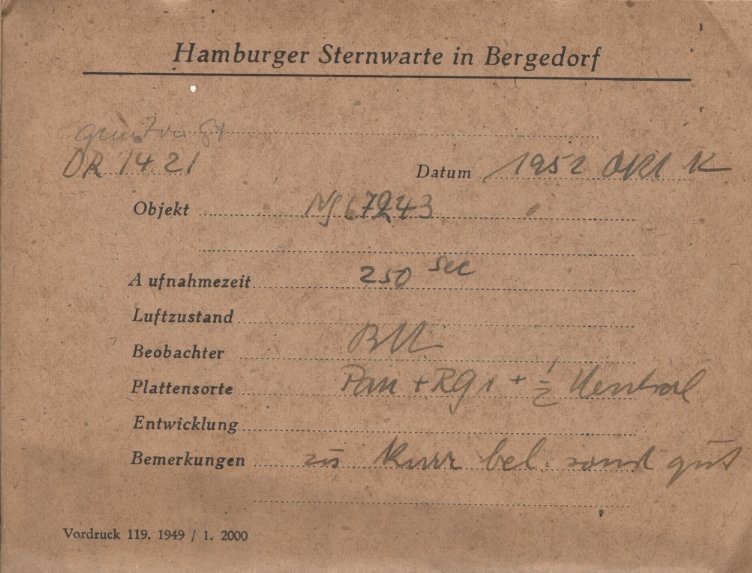 Hamburger Sternwarte in Bergedorf
DR 1421
Datum 1952 Okt
Objekt NGC 7243
Aufnahmezeit 250 sec
Luftzustand
Beobachter
Plattensorte Pan + RG1 + ½ Neutral
Entwicklung
Bemerkungen zu kurz bel. sonst gut
Vordruck 119. 1949 / 1. 2000